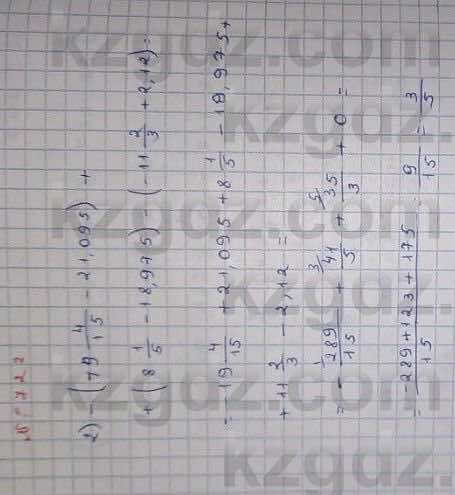 № 722
2) -(19 4/15 - 21,095) +
+ (8 1/5 - 18,975) - (-11 2/3 + 2,12) =
= -19 4/15 + 21,095 + 8 1/5 - 18,975 +
+ 11 2/3 - 2,12 =
= - 289/15 + 41/5 + 35/3 + 0 =
= -289+123+175/15 = 9/15 = 3/5
kzgdz.com
kzgdz.com
kzgdz.com